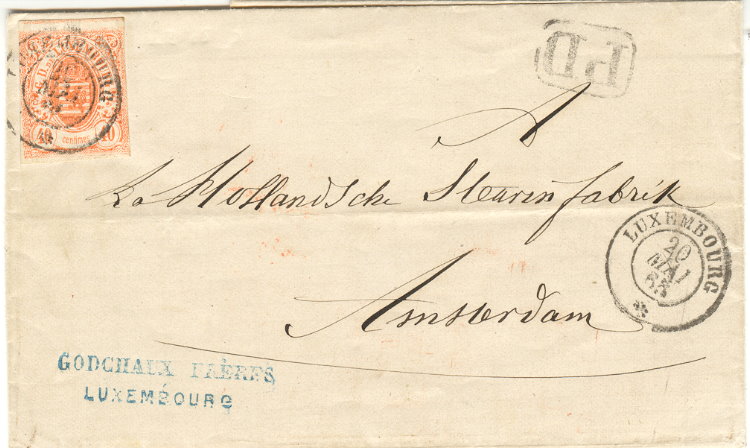 LUXEMBOURG
40 CENTIMES 40
PD
A
La Hollandsche Stearin fabrik
Amsterdam
LUXEMBOURG
20
MAI
GODCHAUX FRÈRES
LUXEMBOURG